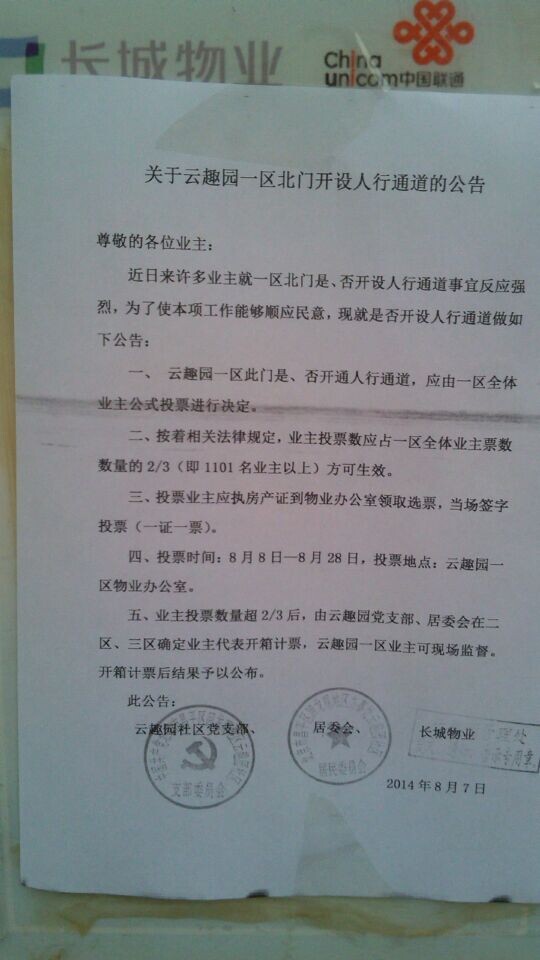 长城物业
China
unicom中国联通
关于云趣园一区北门开设人行通道的公告
尊敬的各位业主：
近日来许多业主就一区北门是、否开设人行通道事宜反应强
烈，为了使本项工作能够顺应民意，现就是否开设人行通道做如
下公告：
一、 云趣园一区此门是、否开通人行通道，应由一区全体
业主公式投票进行决定。
二、按着相关法律规定，业主投票数应占一区全体业主票数
数量的 2/3（即 1101 名业主以上）方可生效。
三、投票业主应执房产证到物业办公室领取选票，当场签字
投票（一证一票）。
四、投票时间：8 月 8 日—8 月 28 日，投票地点：云趣园一
区物业办公室。
五、业主投票数量超 2/3 后，由云趣园党支部、居委会在二
区、三区确定业主代表开箱计票，云趣园一区业主可现场监督。
开箱计票后结果予以公布。
此公告：
云趣园社区党支部、 居委会、 长城物业
支部委员会
居民委员会
2014 年 8 月 7 日